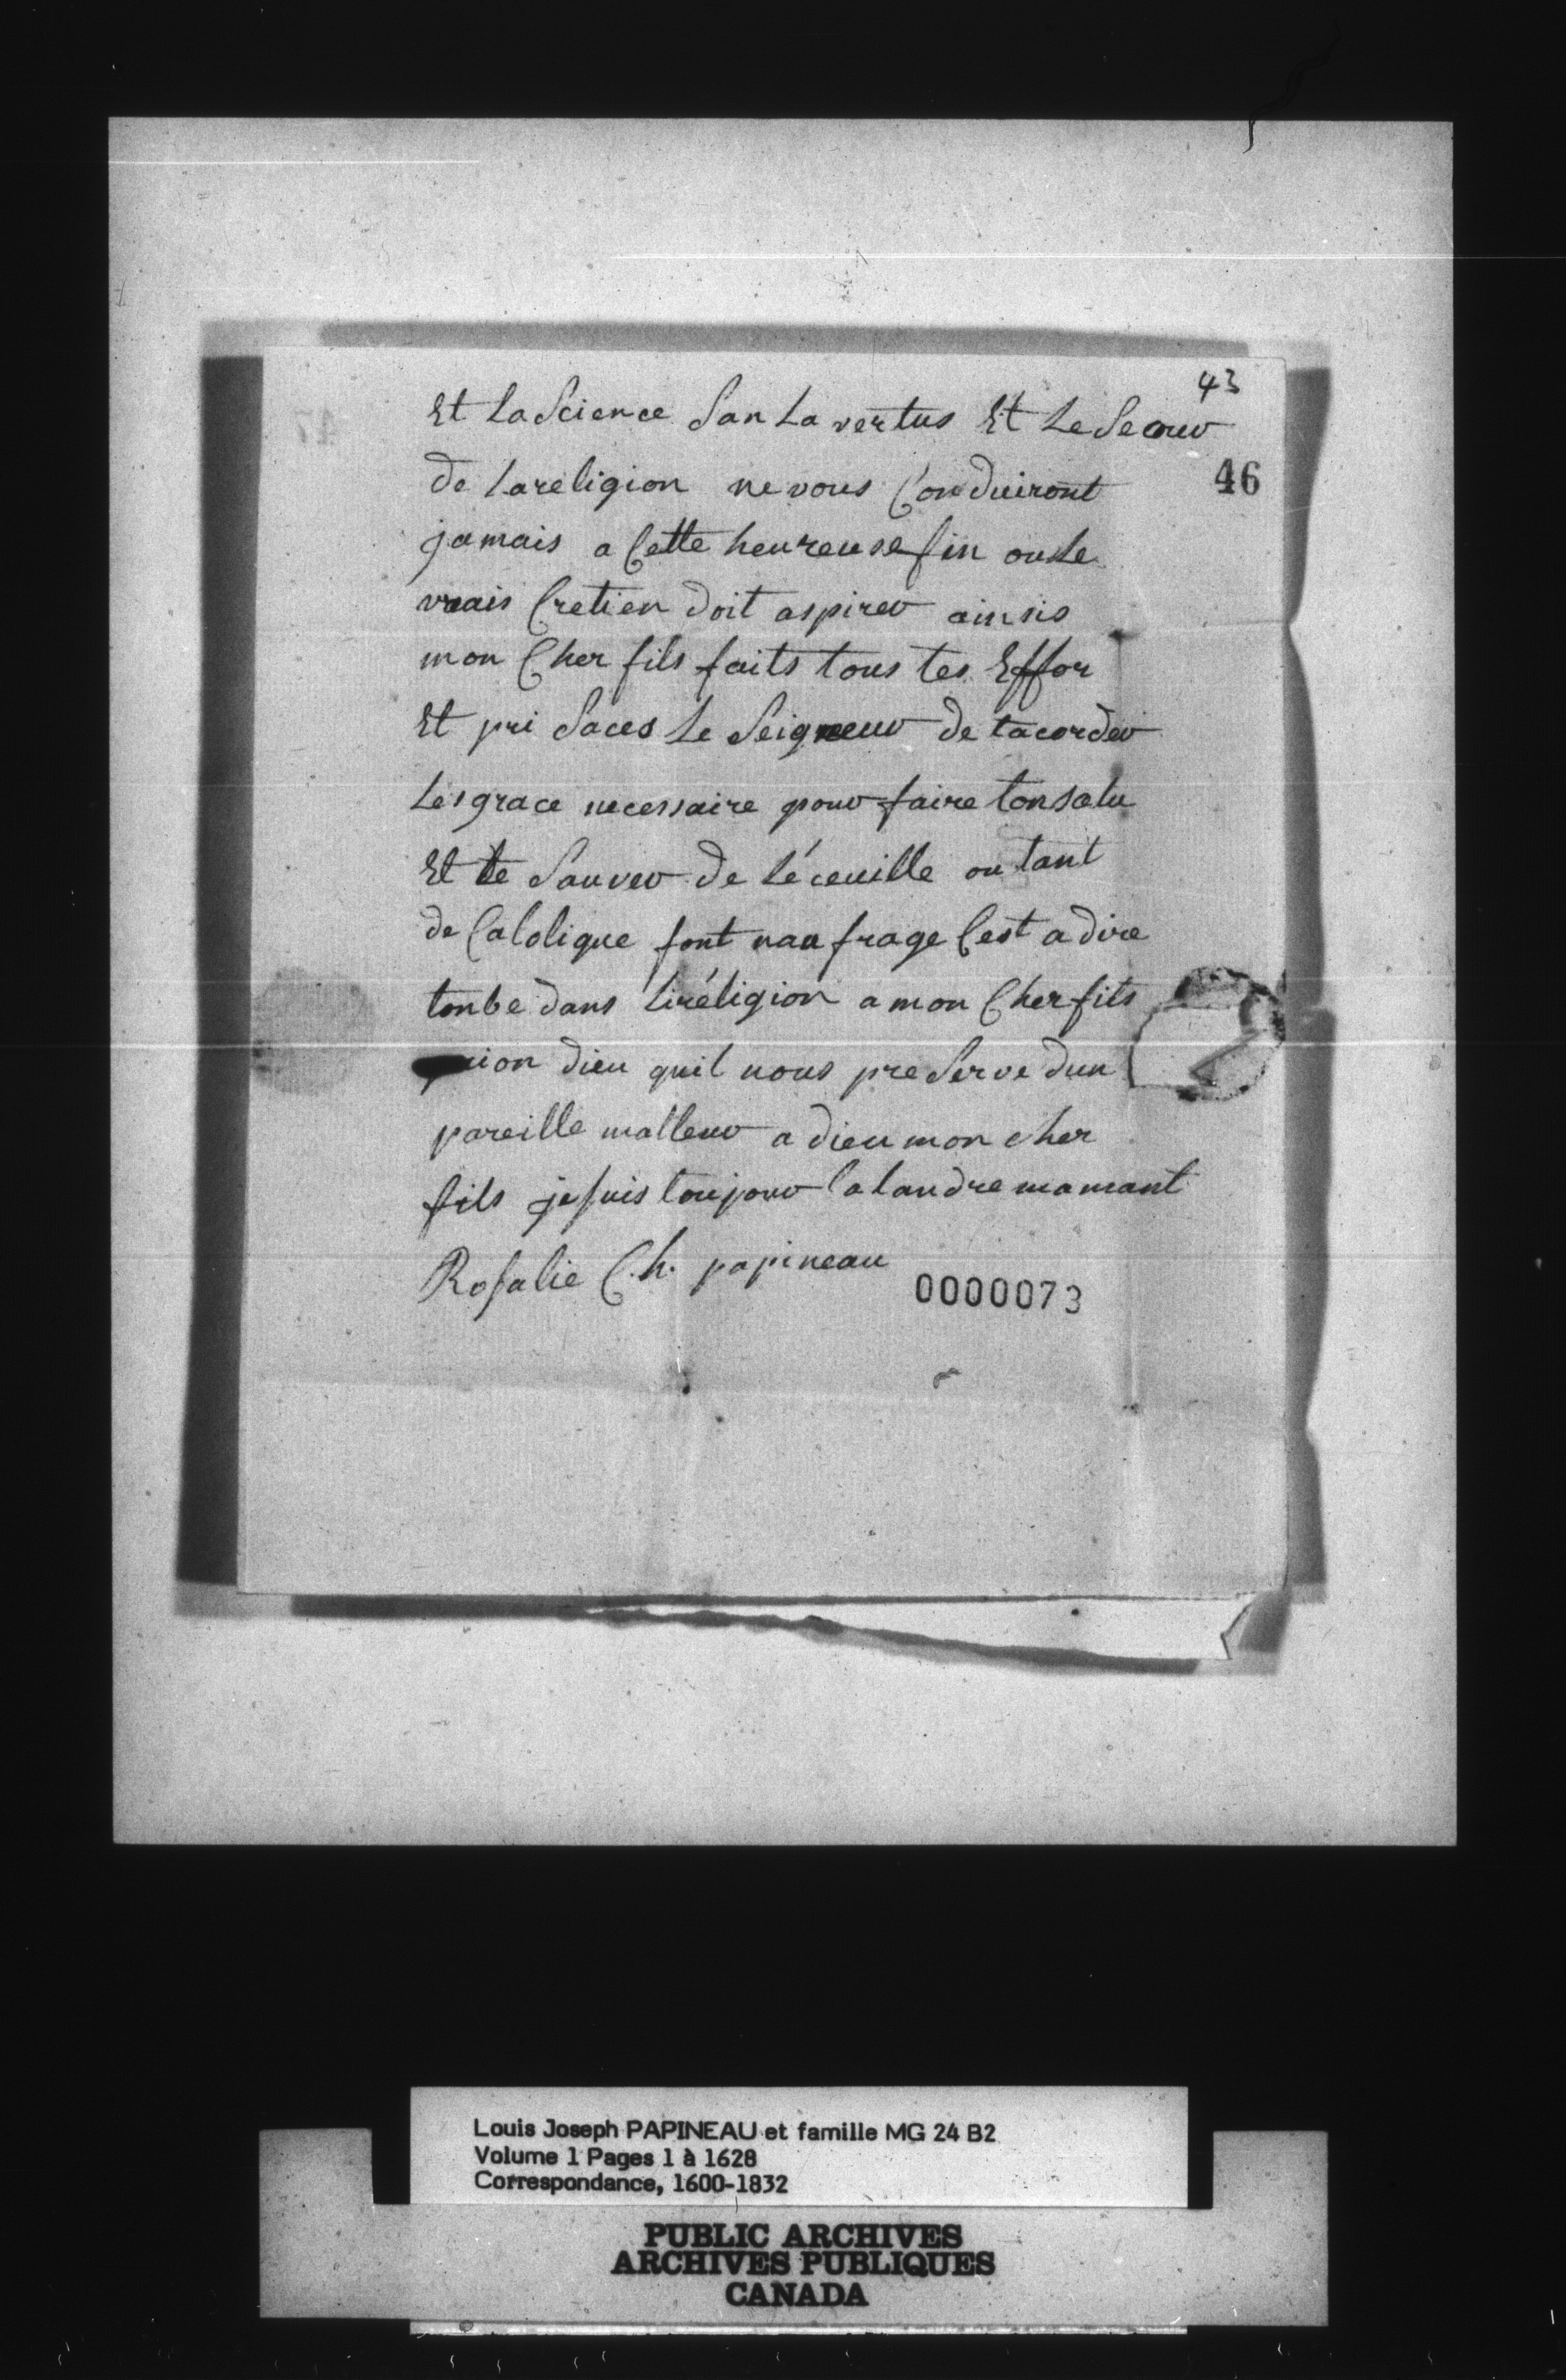 43
Et La Science San La vertus Et Le Secour
46
de La religion ne vous Conduiront
jamais a Cette heureuse fin ou Le
vraais Cretien doit aspirer ainsis
mon Cher fils faits tous tes Effor
Et pri Saces Le Seigneur de tacorder
Les grace necessaire pour faire ton salu
Et te Sauver de Léceuille ou tant
de Catolique font naufrage Cest a dire
tonbe dans Liréligion a mon Cher fils
prion dieu quil nous preserve dun
pareille malleur a dieu mon cher
fils je suis toujour ta tandre mamant
Rosalie C.h. papineau
0000073
Louis Joseph PAPINEAU et famille MG 24 B2
Volume 1 Pages 1 à 1628
Correspondance, 1600-1832
PUBLIC ARCHIVES
ARCHIVES PUBLIQUES
CANADA